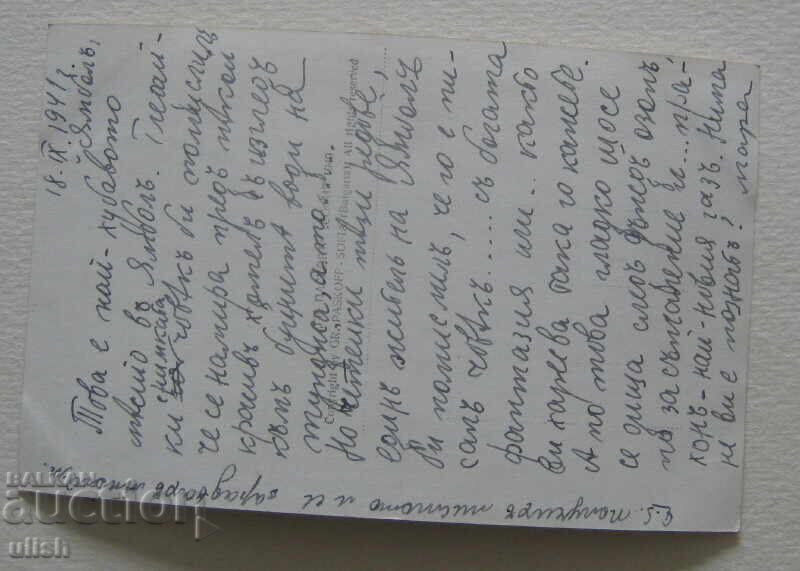 18.IX.1941 г.
Ямболъ,
Това е най-хубавото
място въ Ямболъ. Гледай-
ки снимката човѣкъ би помислилъ
че се намира предъ нѣкой
красивъ хотелъ въ изгледъ
къмъ буйнитѣ води на
Тунджа, ато
Но четейки тези редове,
единъ жителъ на Ямболъ
би помислилъ, че го е пи-
салъ човѣкъ..... съ богата
фантазия или.. както
ви харесва така го кажете.
А по това гладко шосе
се дига следъ дъждъ озонъ
по за съжаление и... пра-
хонъ-най-новия газъ. Нима
не ви е познатъ? Мара
P.S. получихъ писмото и се зарадвахъ много
Copyright by GR. PASKOFF - SOFIA (Bulgaria) All rights reserved
BALKAN
auction
ulish